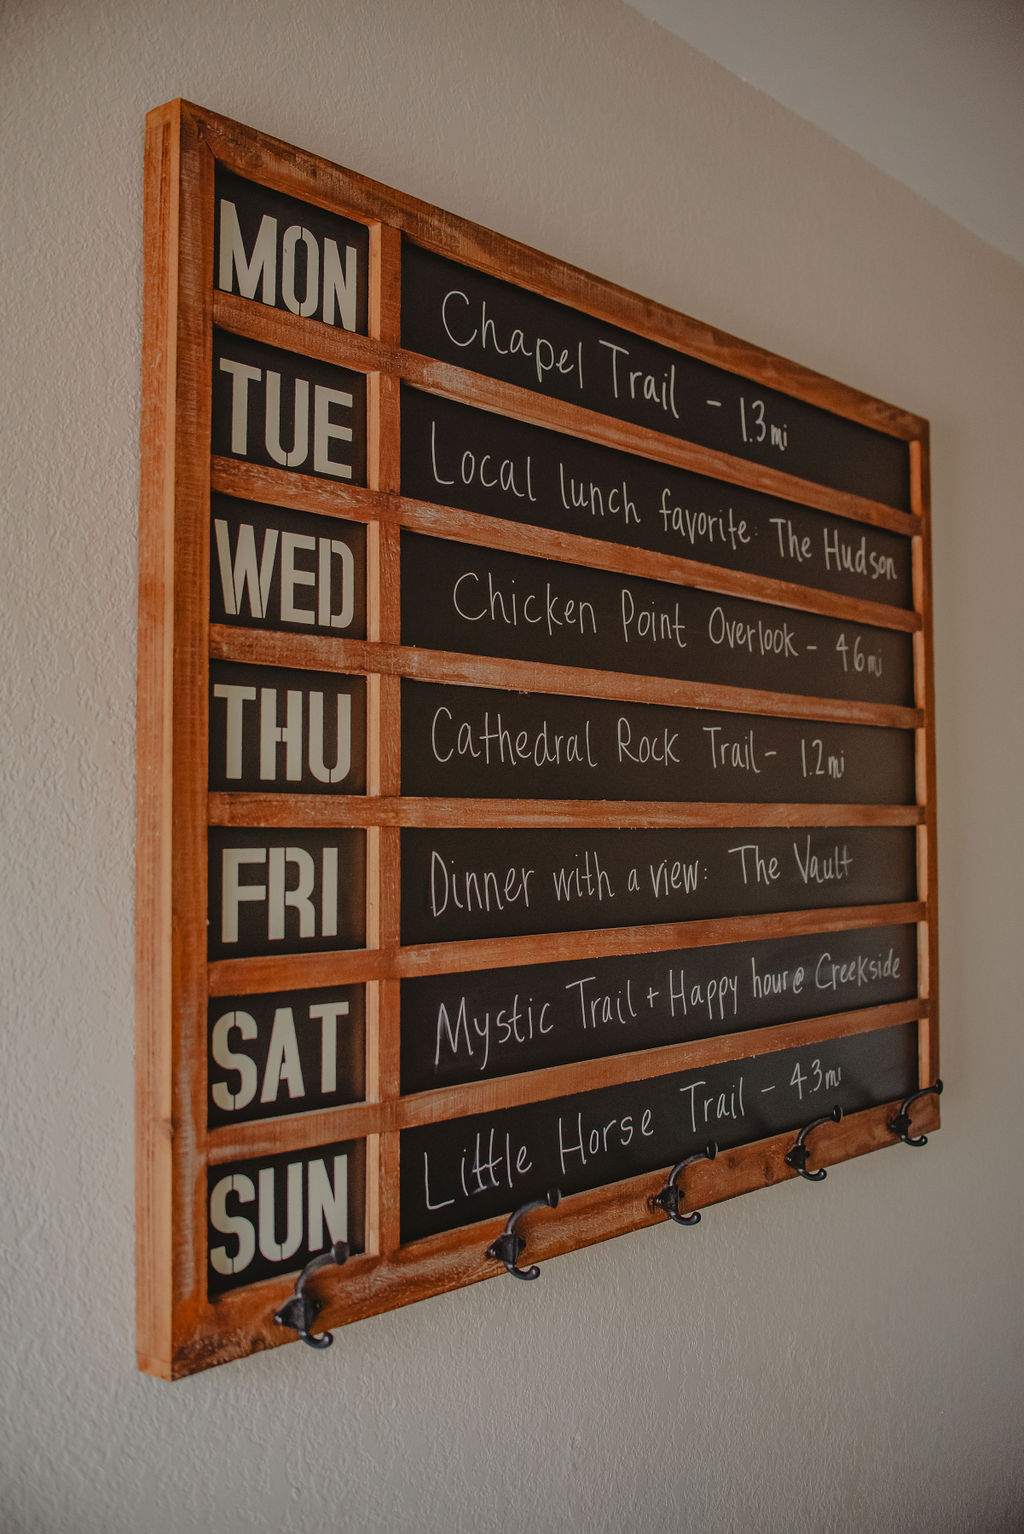 MON
Chapel Trail - 1.3mi
TUE
Local lunch favorite: The Hudson
WED
Chicken Point Overlook - 4.6mi
THU
Cathedral Rock Trail - 1.2mi
FRI
Dinner with a view: The Vault
SAT
Mystic Trail + Happy hour @ Creekside
SUN
Little Horse Trail - 4.3mi